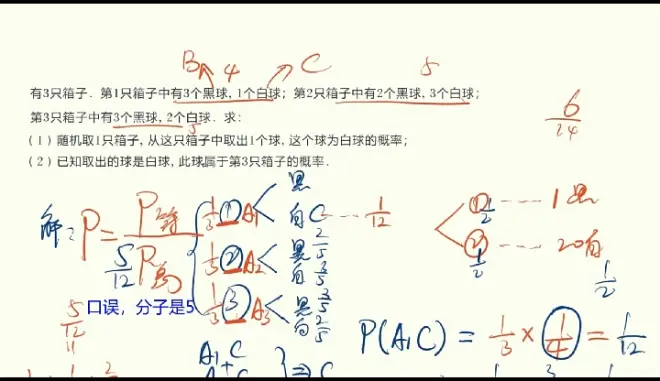 B 4 C 5
有3只箱子．第1只箱子中有3个黑球，1个白球；第2只箱子中有2个黑球，3个白球；
第3只箱子中有3个黑球，2个白球．求：
5
6/24
（1）随机取1只箱子，从这只箱子中取出1个球，这个球为白球的概率；
（2）已知取出的球是白球，此球属于第3只箱子的概率．
解：P = P符/P总
5/12
1/3 ① A₁ 黑
白 C ---- 1/12
1/3 ② A₂ 黑 2/5
白 3/5
1/3 ③ A₃ 黑 3/5
白 2/5
① 1/2 ---- 1黑
② 1/2 ---- 20白
1/2
5/12
口误，分子是5
11
P(A₁C) = 1/3 × 1/4 = 1/12
A₁C